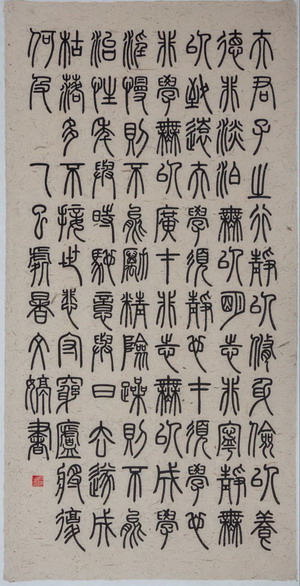 夫君子之行靜以脩身儉以養
德非淡泊無以明志非寧靜無
以致遠夫學須靜也才須學也
非學無以廣才非志無以成學
淫慢則不能勵精險躁則不能
治性年與時馳意與日去遂成
枯落多不接世悲守窮廬將復
何及 乙巳處暑文婷書